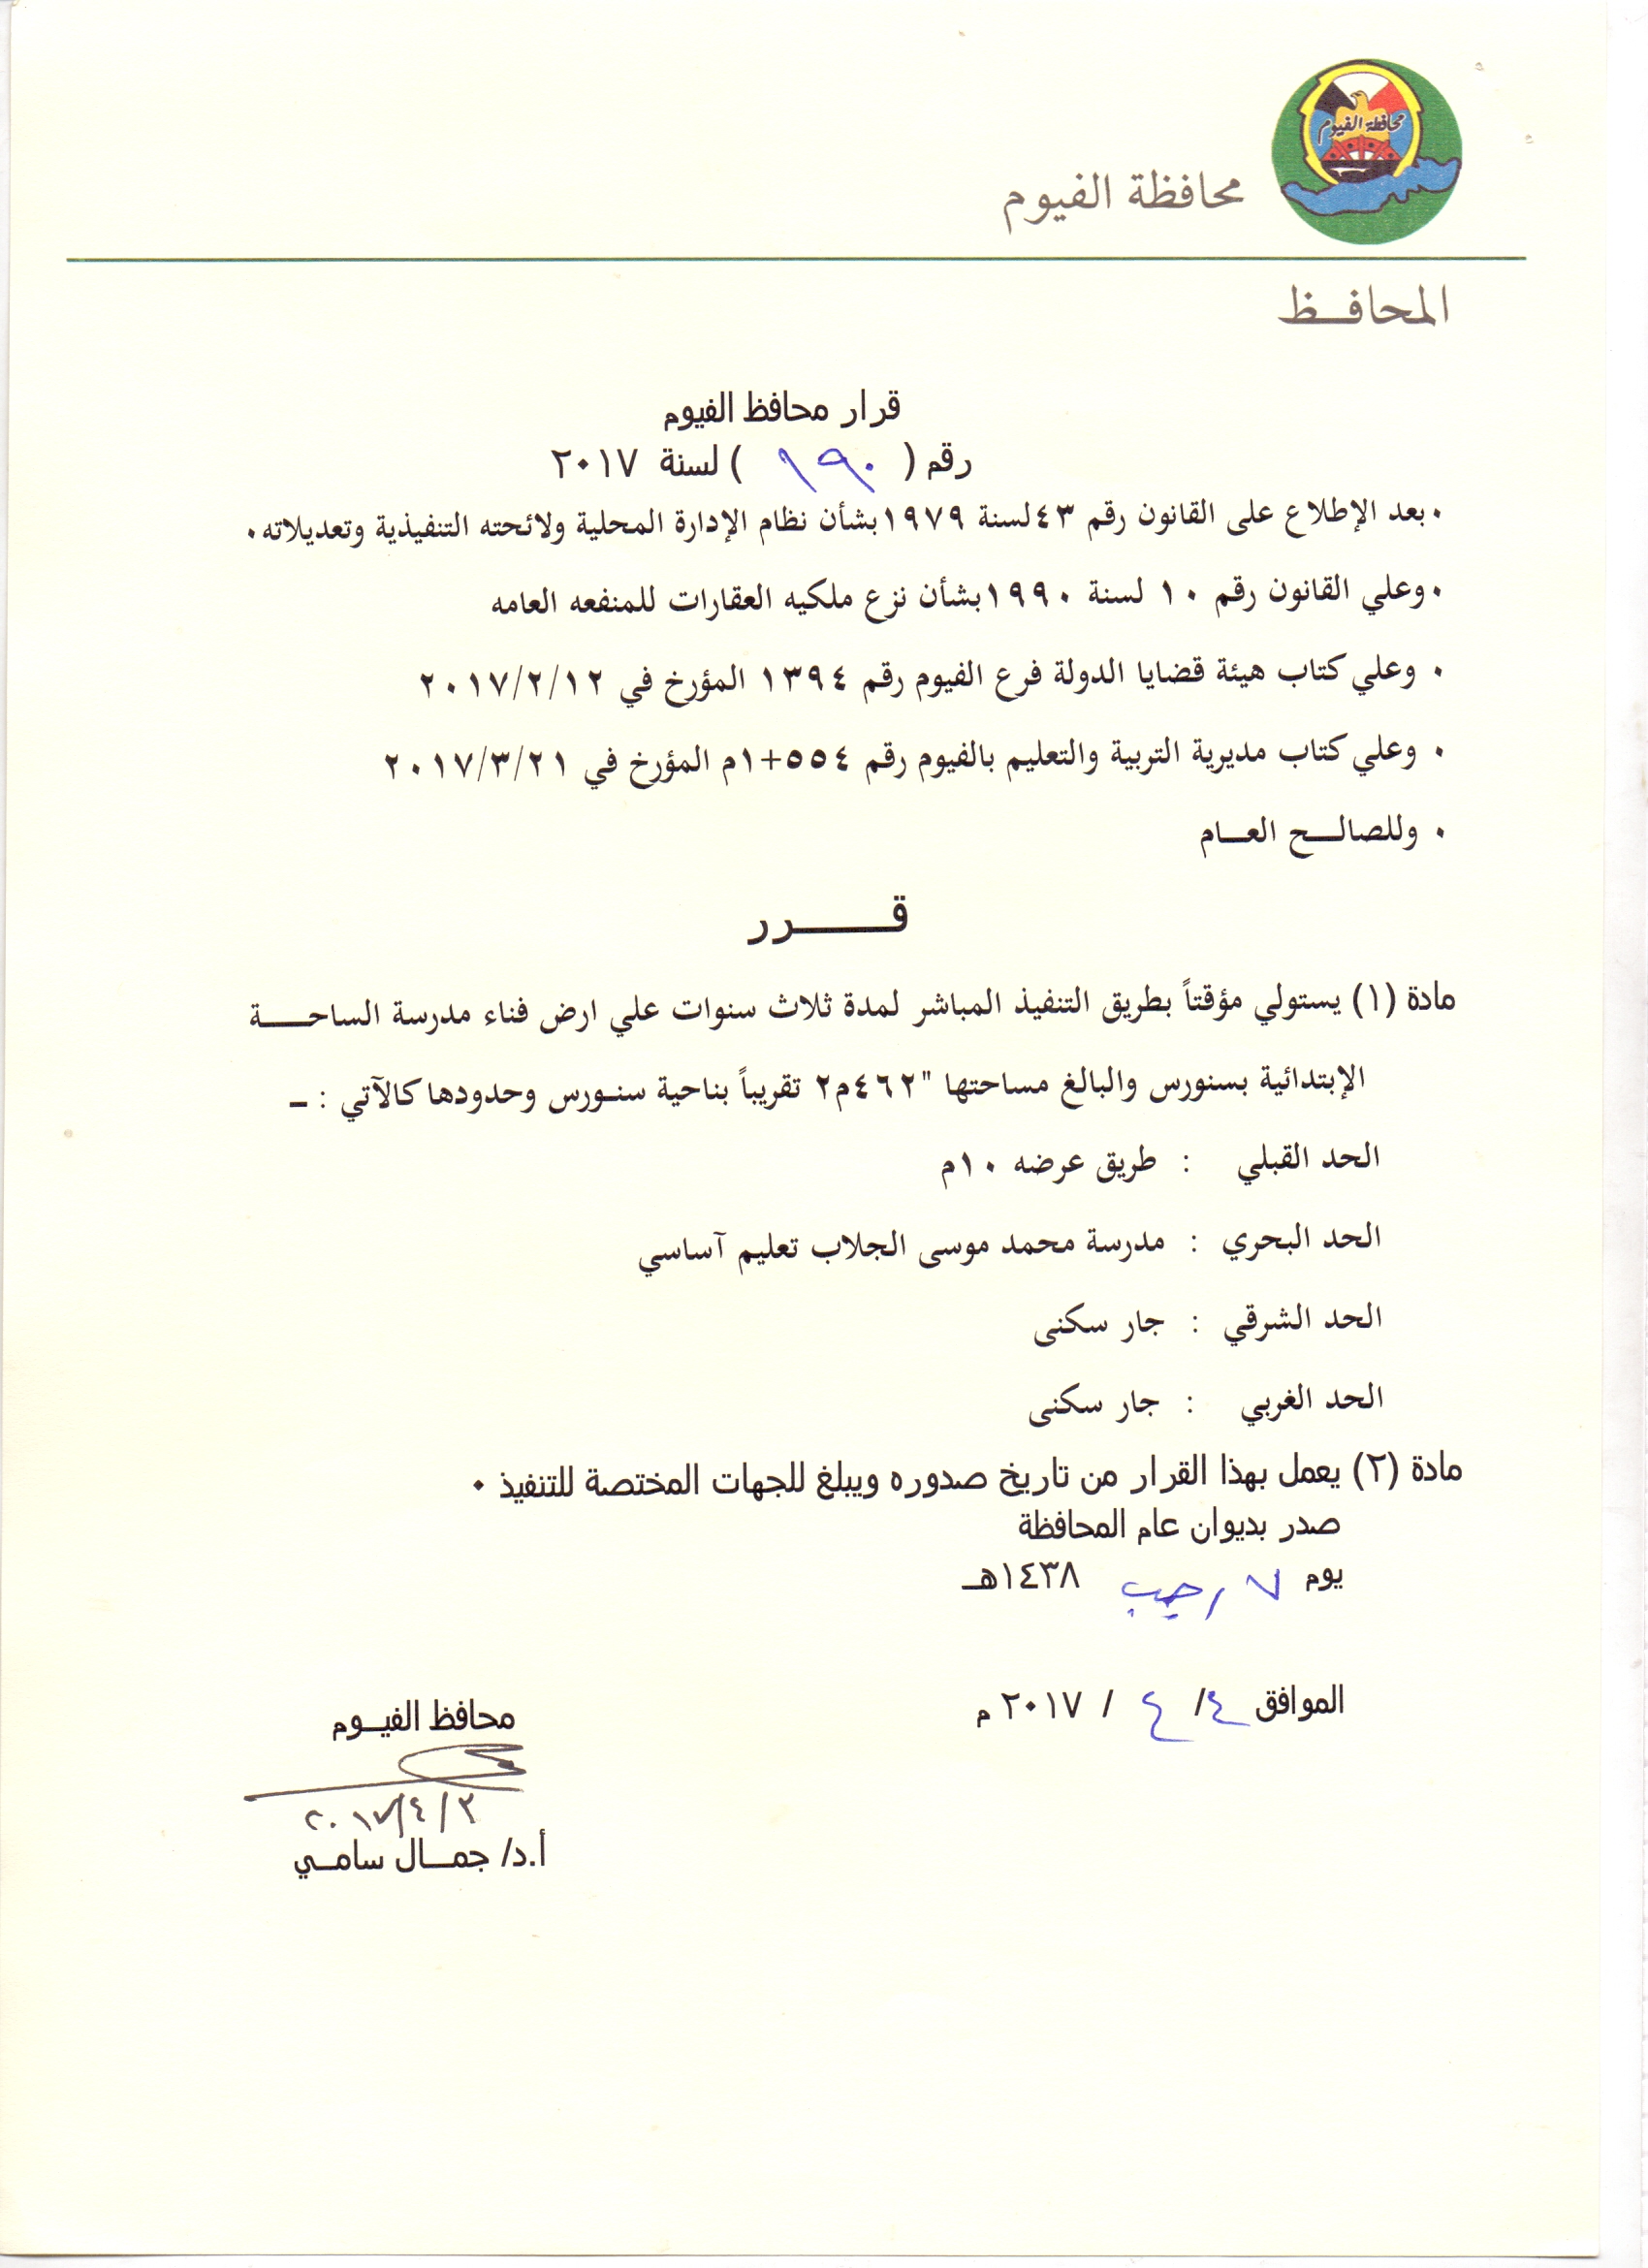 محافظة الفيوم
محافظة الفيوم
المحافــظ
قرار محافظ الفيوم
رقم ( ١٩٠ ) لسنة ٢٠١٧
٠بعد الإطلاع على القانون رقم ٤٣لسنة ١٩٧٩بشأن نظام الإدارة المحلية ولائحته التنفيذية وتعديلاته٠
٠وعلي القانون رقم ١٠ لسنة ١٩٩٠بشأن نزع ملكيه العقارات للمنفعه العامه
٠ وعلي كتاب هيئة قضايا الدولة فرع الفيوم رقم ١٣٩٤ المؤرخ في ٢٠١٧/٢/١٢
٠ وعلي كتاب مديرية التربية والتعليم بالفيوم رقم ٥٥٤+١م المؤرخ في ٢٠١٧/٣/٢١
٠ وللصالــح العــام
قــــــرر
مادة (١) يستولي مؤقتاً بطريق التنفيذ المباشر لمدة ثلاث سنوات علي ارض فناء مدرسة الساحــــة
الإبتدائية بسنورس والبالغ مساحتها "٤٦٢م٢ تقريباً بناحية سنـورس وحدودها كالآتي : ــ
الحد القبلي : طريق عرضه ١٠م
الحد البحري : مدرسة محمد موسى الجلاب تعليم آساسي
الحد الشرقي : جار سكنى
الحد الغربي : جار سكنى
مادة (٢) يعمل بهذا القرار من تاريخ صدوره ويبلغ للجهات المختصة للتنفيذ ٠
صدر بديوان عام المحافظة
يوم ٧ رجب ١٤٣٨هـ
الموافق ٤/ ٤ / ٢٠١٧ م
محافظ الفيــوم
٢٠١٧/٤/٢
أ.د/ جمــال سامــي